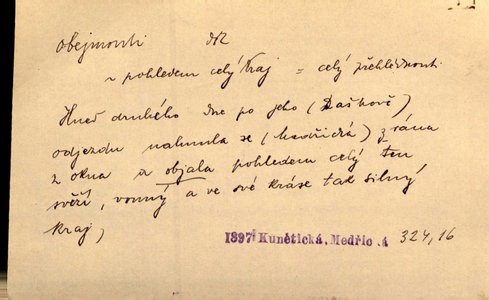 obejmouti dk
~ pohledem celý kraj = celý přehlédnouti.
Hned druhého dne po jeho (Daškově)
odjezdu nahnula se (Medřická) z rána
z okna a objala pohledem celý ten
svěží, vonný a ve své kráse tak silný
kraj,
1897 Kunětická, Medřická 324,16